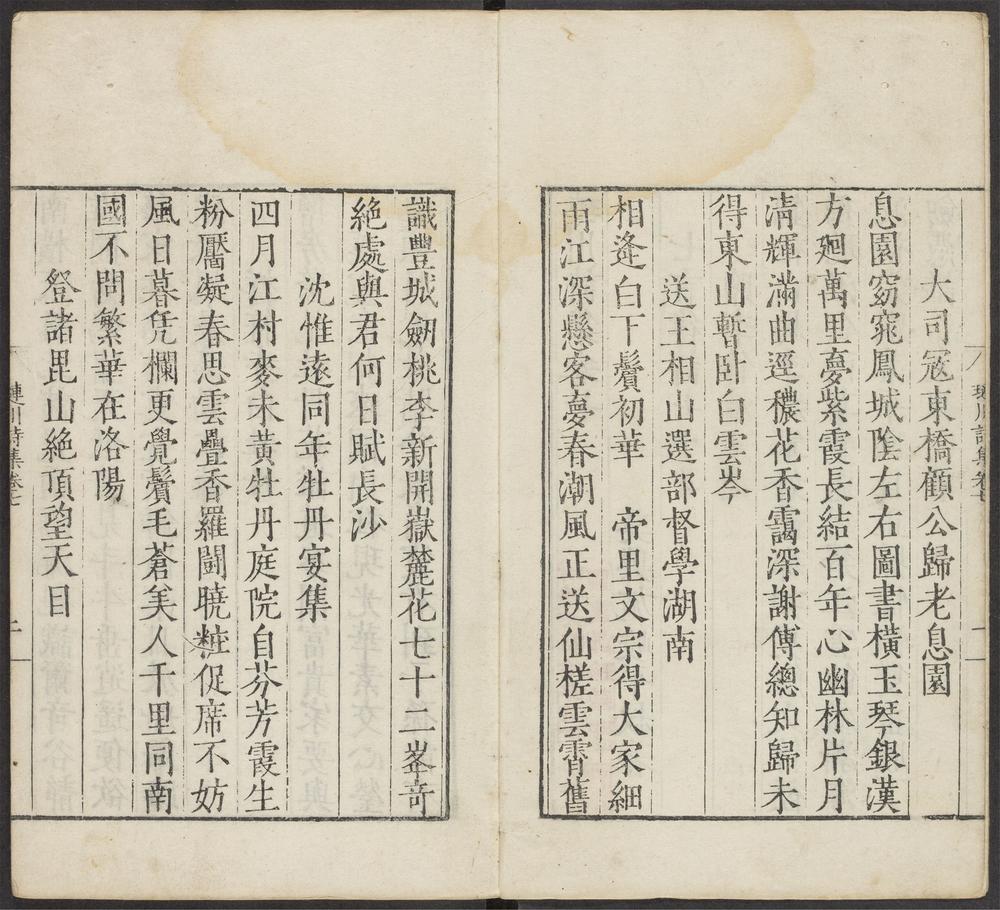 大司寇東橋顧公歸老息園
息園窈窕鳳城陰左右圖書橫玉琴銀漢
方迴萬里夢紫霞長結百年心幽林片月
清輝滿曲逕穠花香靄深謝傅總知歸未
得東山暫卧白雲岑
送王相山選部督學湖南
相逢白下鬢初華　帝里文宗得大家細
雨江深懸客夢春潮風正送仙槎雲霄舊
識豐城劒桃李新開嶽麓花七十二峯竒
絶處與君何日賦長沙
沈惟遠同年牡丹宴集
四月江村麥未黄牡丹庭院自芬芳霞生
粉靨凝春思雲疊香羅鬪曉粧促席不妨
風日暮凭欄更覺鬢毛蒼美人千里同南
國不問繁華在洛陽
登諸毘山絶頂望天目
詩集卷七
二